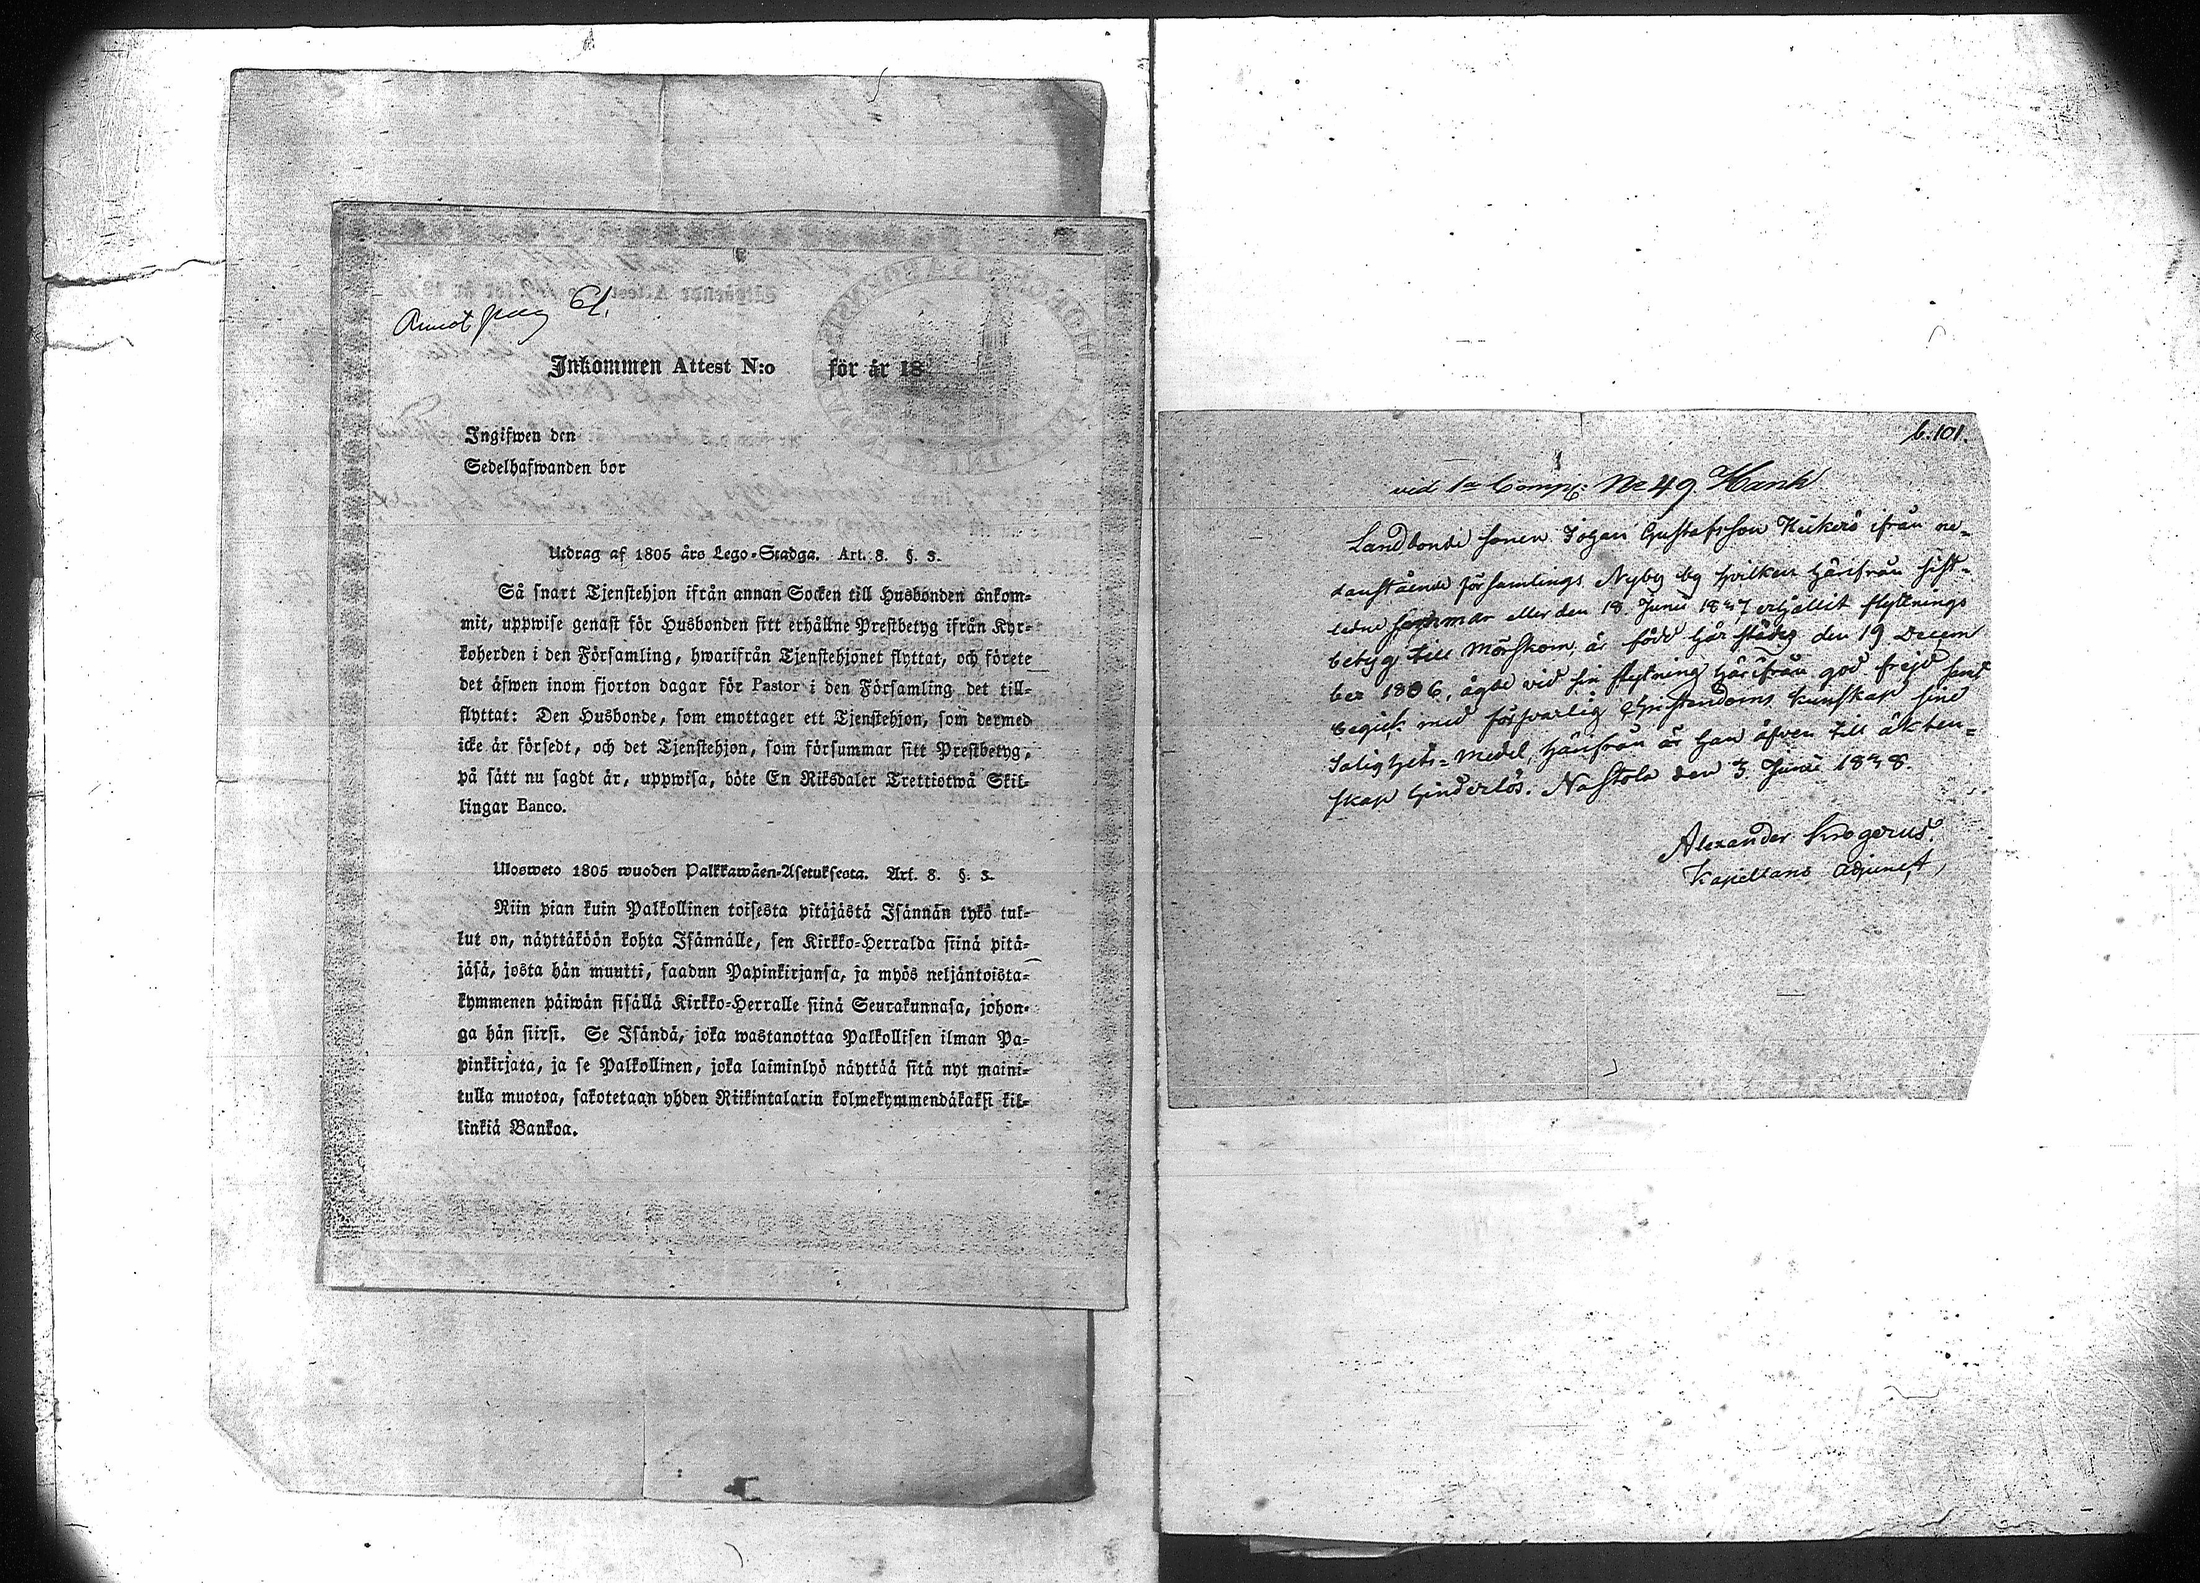 Inkommen Attest N:o för år 18
Ingifwen den
Sedelhafwanden bor
Utdrag af 1805 års Lego-Stadga. Art. 8. §. 3.
Så snart Tjenstehjon ifrån annan Socken till Husbonden ankom-
mit, uppwise genast för Husbonden sitt erhållne Prestbetyg ifrån Kyr-
koherden i den Församling, hwarifrån Tjenstehjonet flyttat, och förete
det äfwen inom fjorton dagar för Pastor i den Församling det till-
flyttat: Den Husbonde, som emottager ett Tjenstehjon, som dermed
icke är försedt, och det Tjenstehjon, som försummar sitt Prestbetyg,
på sätt nu sagdt är, uppwisa, böte En Riksdaler Trettiotwå Skil-
lingar Banco.
Ulosweto 1805 wuoden Palkkawäen-Asetuksesta. Art. 8. §. 3.
Niin pian kuin Palkollinen toisesta pitäjästä Isännän tykö tul-
lut on, näyttäköön kohta Isännälle, sen Kirkko-Herralda siinä pitä-
jäsä, josta hän muutti, saadun Papinkirjansa, ja myös neljäntoista-
kymmenen päiwän sisällä Kirkko-Herralle siinä Seurakunnasa, johon-
ga hän siirsi. Se Isändä, joka wastanottaa Palkollisen ilman Pa-
pinkirjata, ja se Palkollinen, joka laiminlyö näyttää sitä nyt maini-
tulla muotoa, sakotetaan yhden Riikintalarin kolmekymmendäkaksi kil-
linkiä Bankoa.
b. 101.
vid 1a Comp: No 49. Hank
Landbonde sonen Johan Gustafsson Heikerö ifrån ne-
danstående församlings Nyby by hvilken härifrån sist-
ledne sommar eller den 18 Junii 1837 erhållit flyttnings
betyg till Mörskom, är född härstädes den 19 Decem
ber 1806, ägde vid sin flyttning härifrån god frejd samt
begick med försvarlig Christendoms kunskap sine
Salighets-Medel, härifrån är han äfven till äkten-
skap hinderlös. Nastola den 3 Junii 1838.
Alexander Krogerus.
Kapellans Adjunct